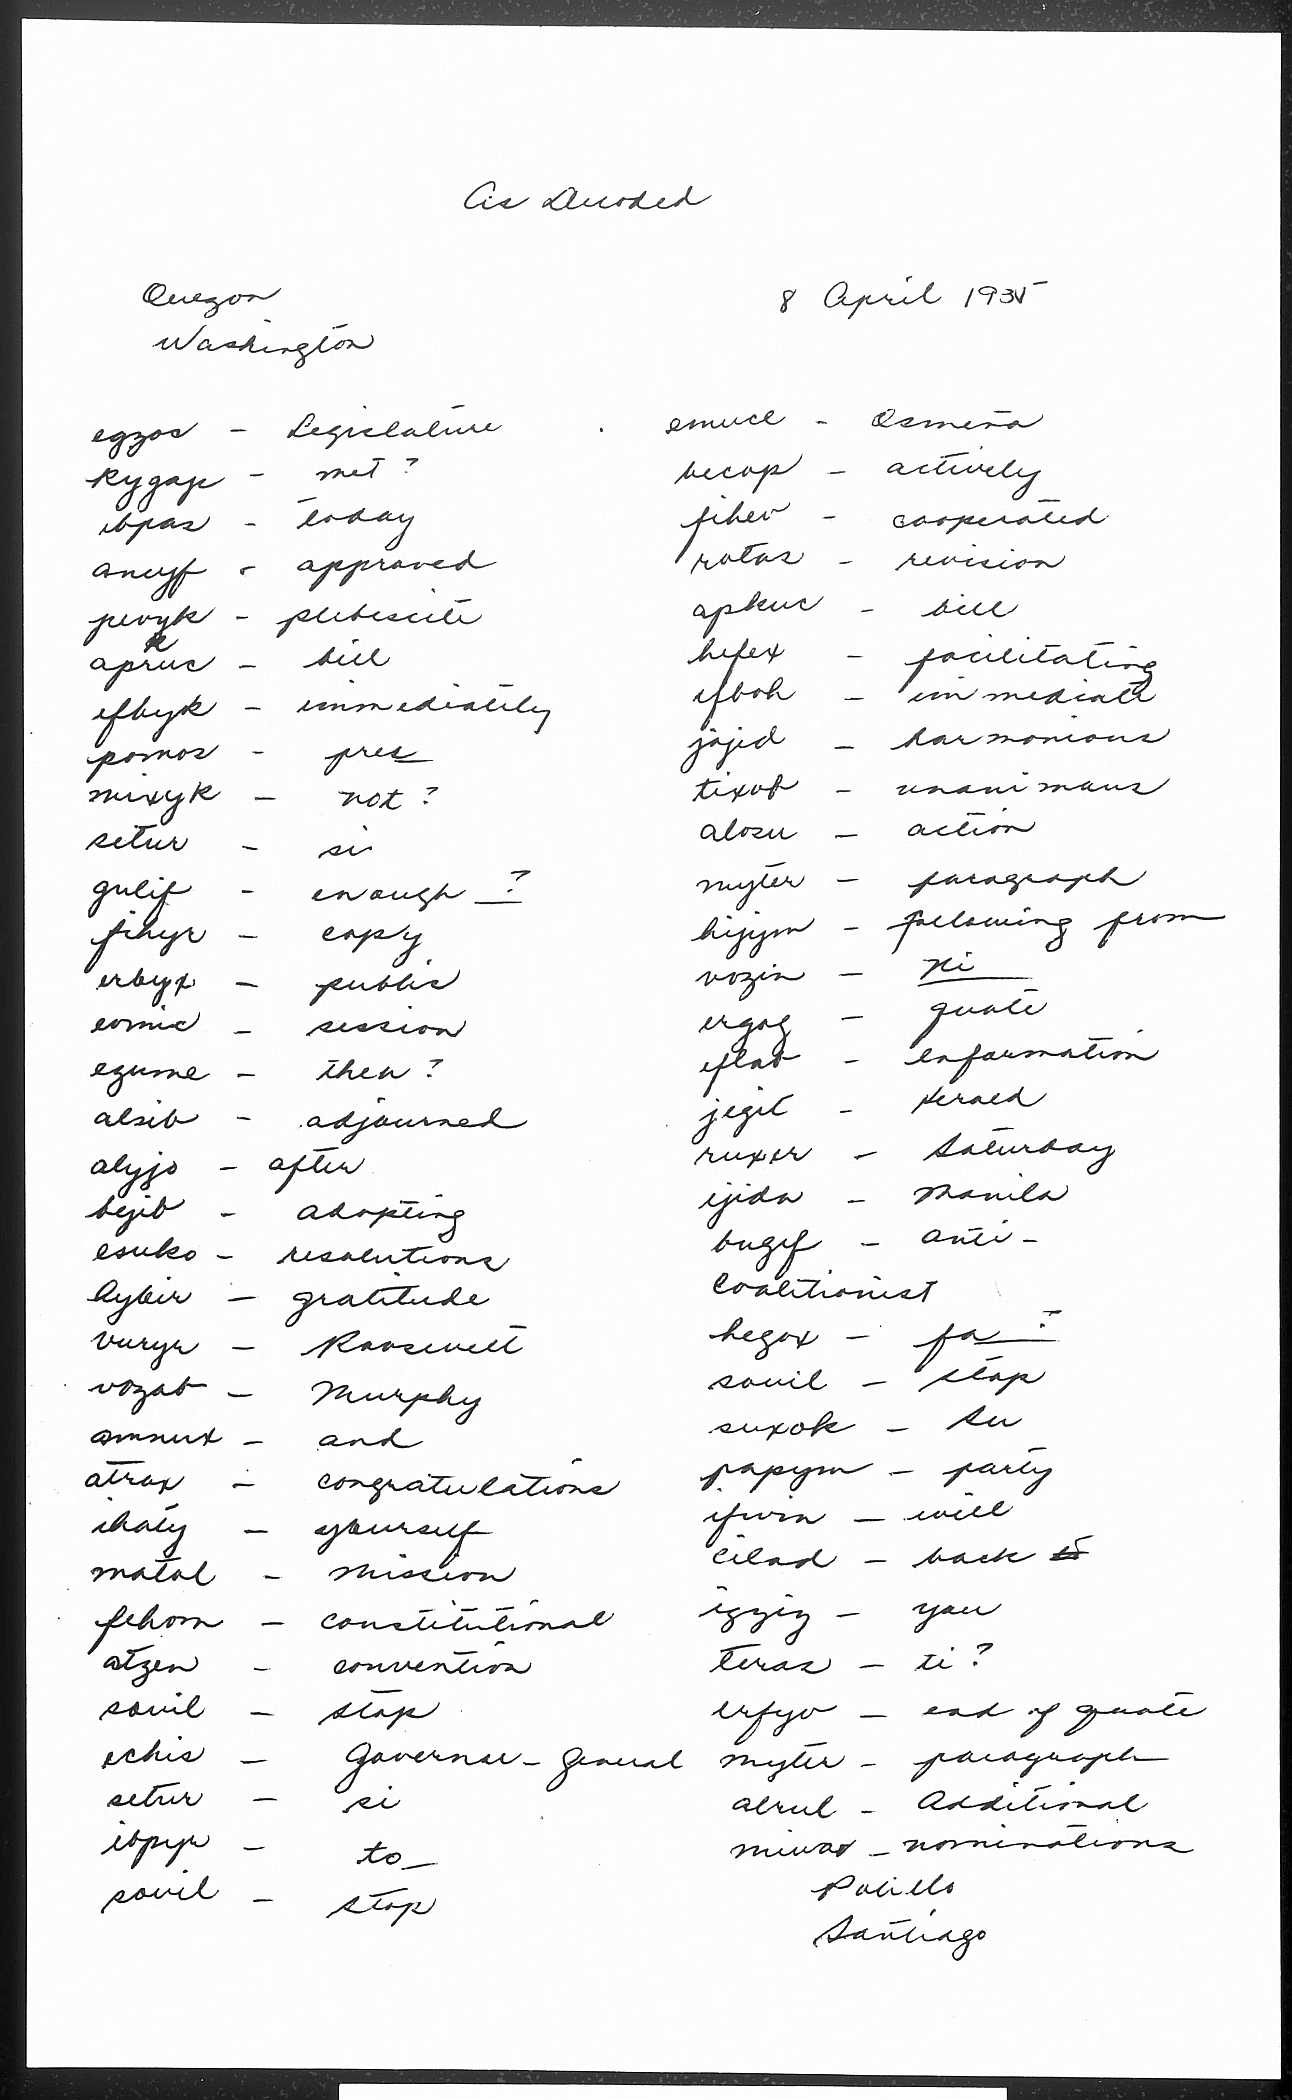 As Decoded
Quezon
8 April 1935
Washington
egzos - Legislature
kygap - met ?
ibpas - today
aneyf - approved
pevyk - plebiscite
apkuc - bill
efbyk - immediately
pomos - pres
mixyk - not ?
setur - si
gulif - enough ?
fihyr - copy
erbyx - public
eomic - session
ezume - then ?
alsib - adjourned
alyjo - after
bejib - adopting
esuko - resolutions
hybir - gratitude
vuryr - Roosevelt
vozab - Murphy
amnux - and
atrax - congratulations
ihaty - yourself
matal - mission
fehom - constitutional
atzen - convention
sovil - stop
echis - Governor-General
setur - si
ibpyr - to
sovil - stop
emucl - Osmeña
becop - actively
fihev - cooperated
rotas - revision
apkuc - bill
hefex - facilitating
efboh - immediate
jojed - harmonious
tixob - unanimous
alosu - action
myter - paragraph
hijym - following from
vozin - ni
ergog - quote
eflab - information
jegit - Herald
ruxer - Saturday
ejida - Manila
bugef - anti-
Coalitionist
hegox - fa ?
sovil - stop
suxok - su
papym - party
ifwin - will
cilad - back
igzig - you
teras - ti ?
erfyv - end of quote
myter - paragraph
alrul - Additional
miwax - nominations
Polillo
Santiago